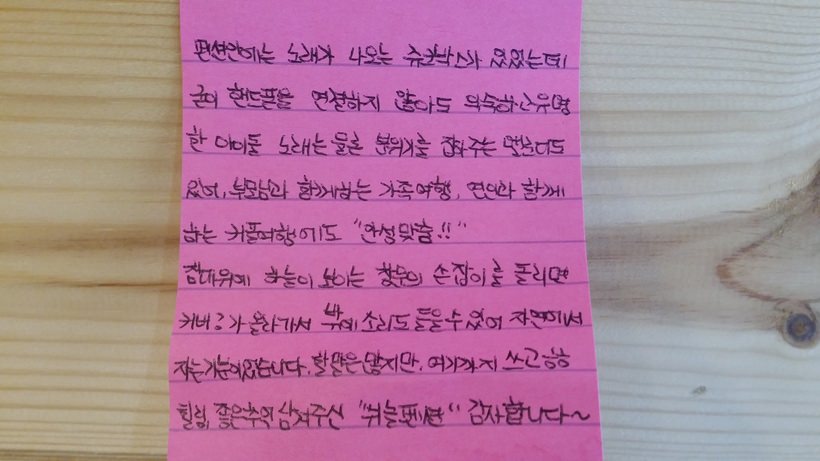 펜션안에는 노래가 나오는 쥬크박스가 있었는데
굳이 핸드폰을 연결하지 않아도 익숙하신 유명
한 아이돌 노래는 물론 분위기를 잡아주는 멜로디도
있어, 부모님과 함께하는 가족여행, 연인과 함께
하는 커플여행에도 "안성맞춤!!"
침대위에 하늘이 보이는 창문의 손잡이를 돌리면
커버?가 올라가서 밖에 소리도 들을수 있어 자연에서
자는기분이었습니다. 할말은 많지만, 여기까지 쓰고
힐링, 좋은추억 남겨주신 "하늘펜션" 감사합니다~